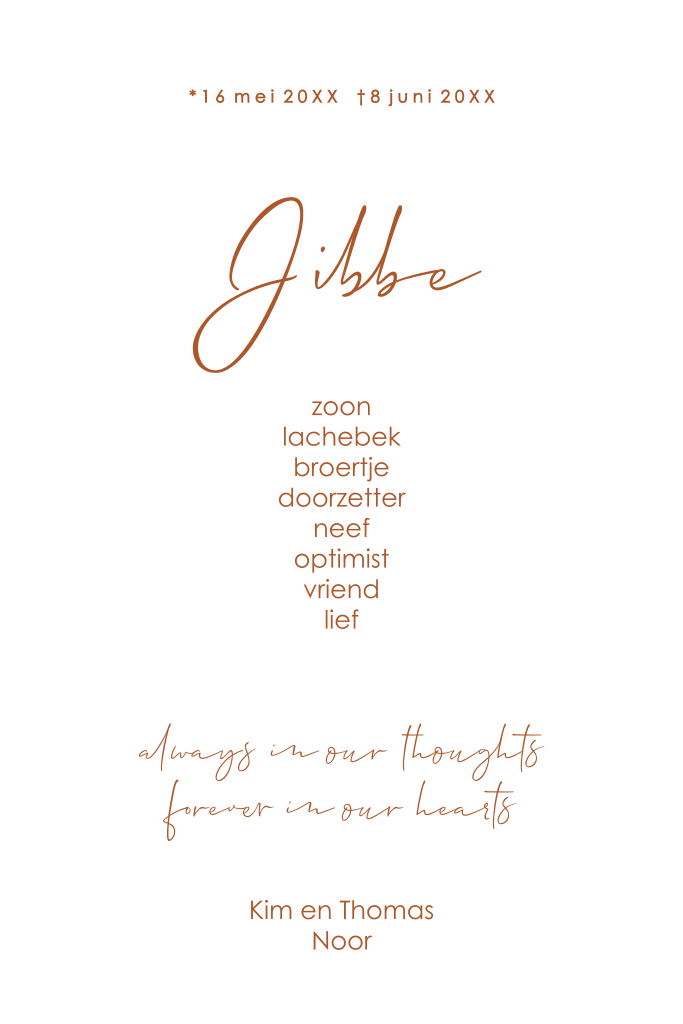 *16 mei 20XX †8 juni 20XX
Jibbe
zoon
lachebek
broertje
doorzetter
neef
optimist
vriend
lief
always in our thoughts
forever in our hearts
Kim en Thomas
Noor